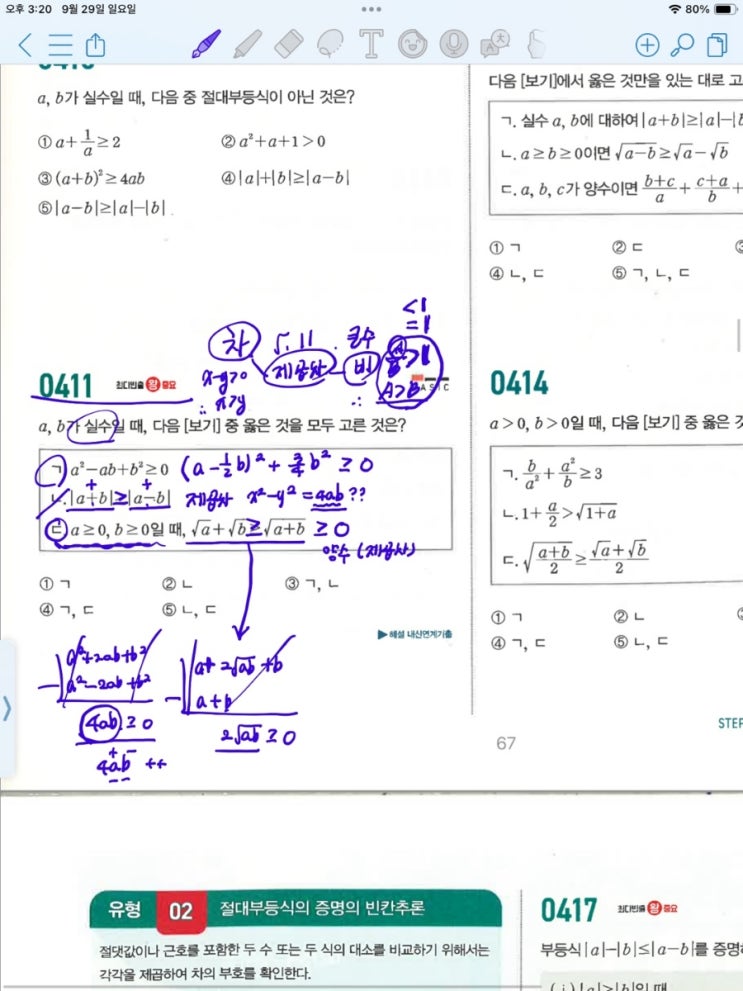 오후 3:20 9월 29일 일요일
80%
a, b가 실수일 때, 다음 중 절대부등식이 아닌 것은?
① a+1/a≥2
② a²+a+1>0
③ (a+b)²≥4ab
④ |a|+|b|≥|a-b|
⑤ |a-b|≥|a|-|b|
차 √. || 큰수
제곱차 비
<1
=1
A/B>1
A>B
x-y>0
∴ x>y
∴
0411 최다빈출 왕 중요
a, b가 실수일 때, 다음 [보기] 중 옳은 것을 모두 고른 것은?
ㄱ. a²-ab+b²≥0 (a-½b)²+¾b² ≥0
ㄴ. |a+b|≥|a-b| 제곱차 x²-y²=4ab??
ㄷ. a≥0, b≥0일 때, √a+√b≥√(a+b) ≥0
양수 (제곱차)
① ㄱ
② ㄴ
③ ㄱ, ㄴ
④ ㄱ, ㄷ
⑤ ㄴ, ㄷ
▶해설 내신연계기출
a²+2ab+b²
-a²-2ab+b²
4ab ≥0
4ab ++
a+2√ab+b
- a+b
2√ab ≥0
다음 [보기]에서 옳은 것만을 있는 대로 고
ㄱ. 실수 a, b에 대하여 |a+b|≥|a|-|b
ㄴ. a≥b≥0이면 √(a-b)≥√a-√b
ㄷ. a, b, c가 양수이면 (b+c)/a+(c+a)/b+
① ㄱ
② ㄷ
④ ㄴ, ㄷ
⑤ ㄱ, ㄴ, ㄷ
0414
a>0, b>0일 때, 다음 [보기] 중 옳은 것
ㄱ. b/a²+a²/b≥3
ㄴ. 1+a/2>√(1+a)
ㄷ. √((a+b)/2)≥(√a+√b)/2
① ㄱ
② ㄴ
④ ㄱ, ㄷ
⑤ ㄴ, ㄷ
STEP
67
유형 02 절대부등식의 증명의 빈칸추론
절댓값이나 근호를 포함한 두 수 또는 두 식의 대소를 비교하기 위해서는
각각을 제곱하여 차의 부호를 확인한다.
0417 최다빈출 왕 중요
부등식 |a|-|b|≤|a-b|를 증명하
(ⅰ) |a|≥|b|일 때